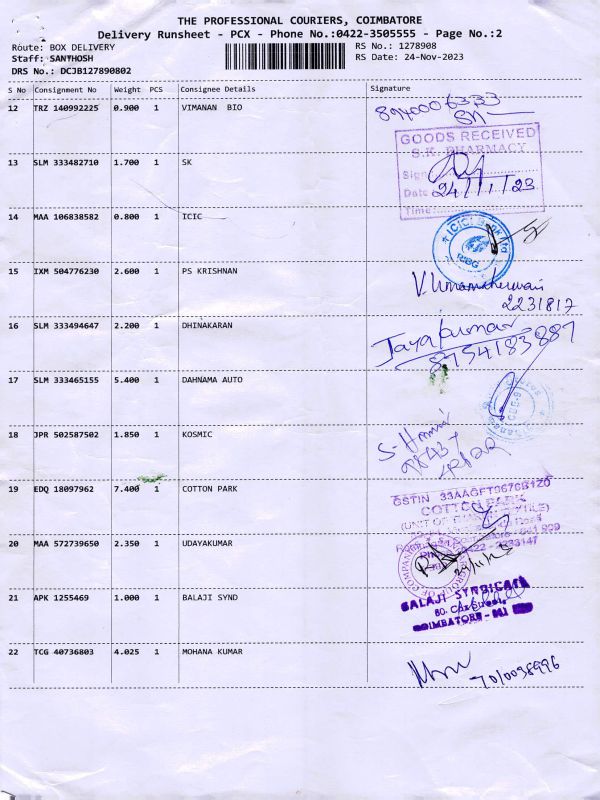 THE PROFESSIONAL COURIERS, COIMBATORE
Delivery Runsheet - PCX - Phone No.:0422-3505555 - Page No.:2
Route: BOX DELIVERY RS No.: 1278908
Staff: SANTHOSH RS Date: 24-Nov-2023
DRS No.: DCJB127890802
S No Consignment No Weight PCS Consignee Details Signature
12 TRZ 140992225 0.900 1 VIMANAN BIO
GOODS RECEIVED
S.K. PHARMACY
13 SLM 333482710 1.700 1 SK
Sign
Date 24/11/23
Time:
14 MAA 106838582 0.800 1 ICIC
ICICI Bank
15 IXM 504776230 2.600 1 PS KRISHNAN
V. Umamaheswari
2231817
16 SLM 333494647 2.200 1 DHINAKARAN
Jayakumar
8754183887
17 SLM 333465155 5.400 1 DAHNAMA AUTO
18 JPR 502587502 1.850 1 KOSMIC
19 EDQ 18097962 7.400 1 COTTON PARK
COTTON PARK
20 MAA 572739650 2.350 1 UDAYAKUMAR
21 APK 1255469 1.000 1 BALAJI SYND
BALAJI SYNDICATE
COIMBATORE
22 TCG 40736803 4.025 1 MOHANA KUMAR
7010038996